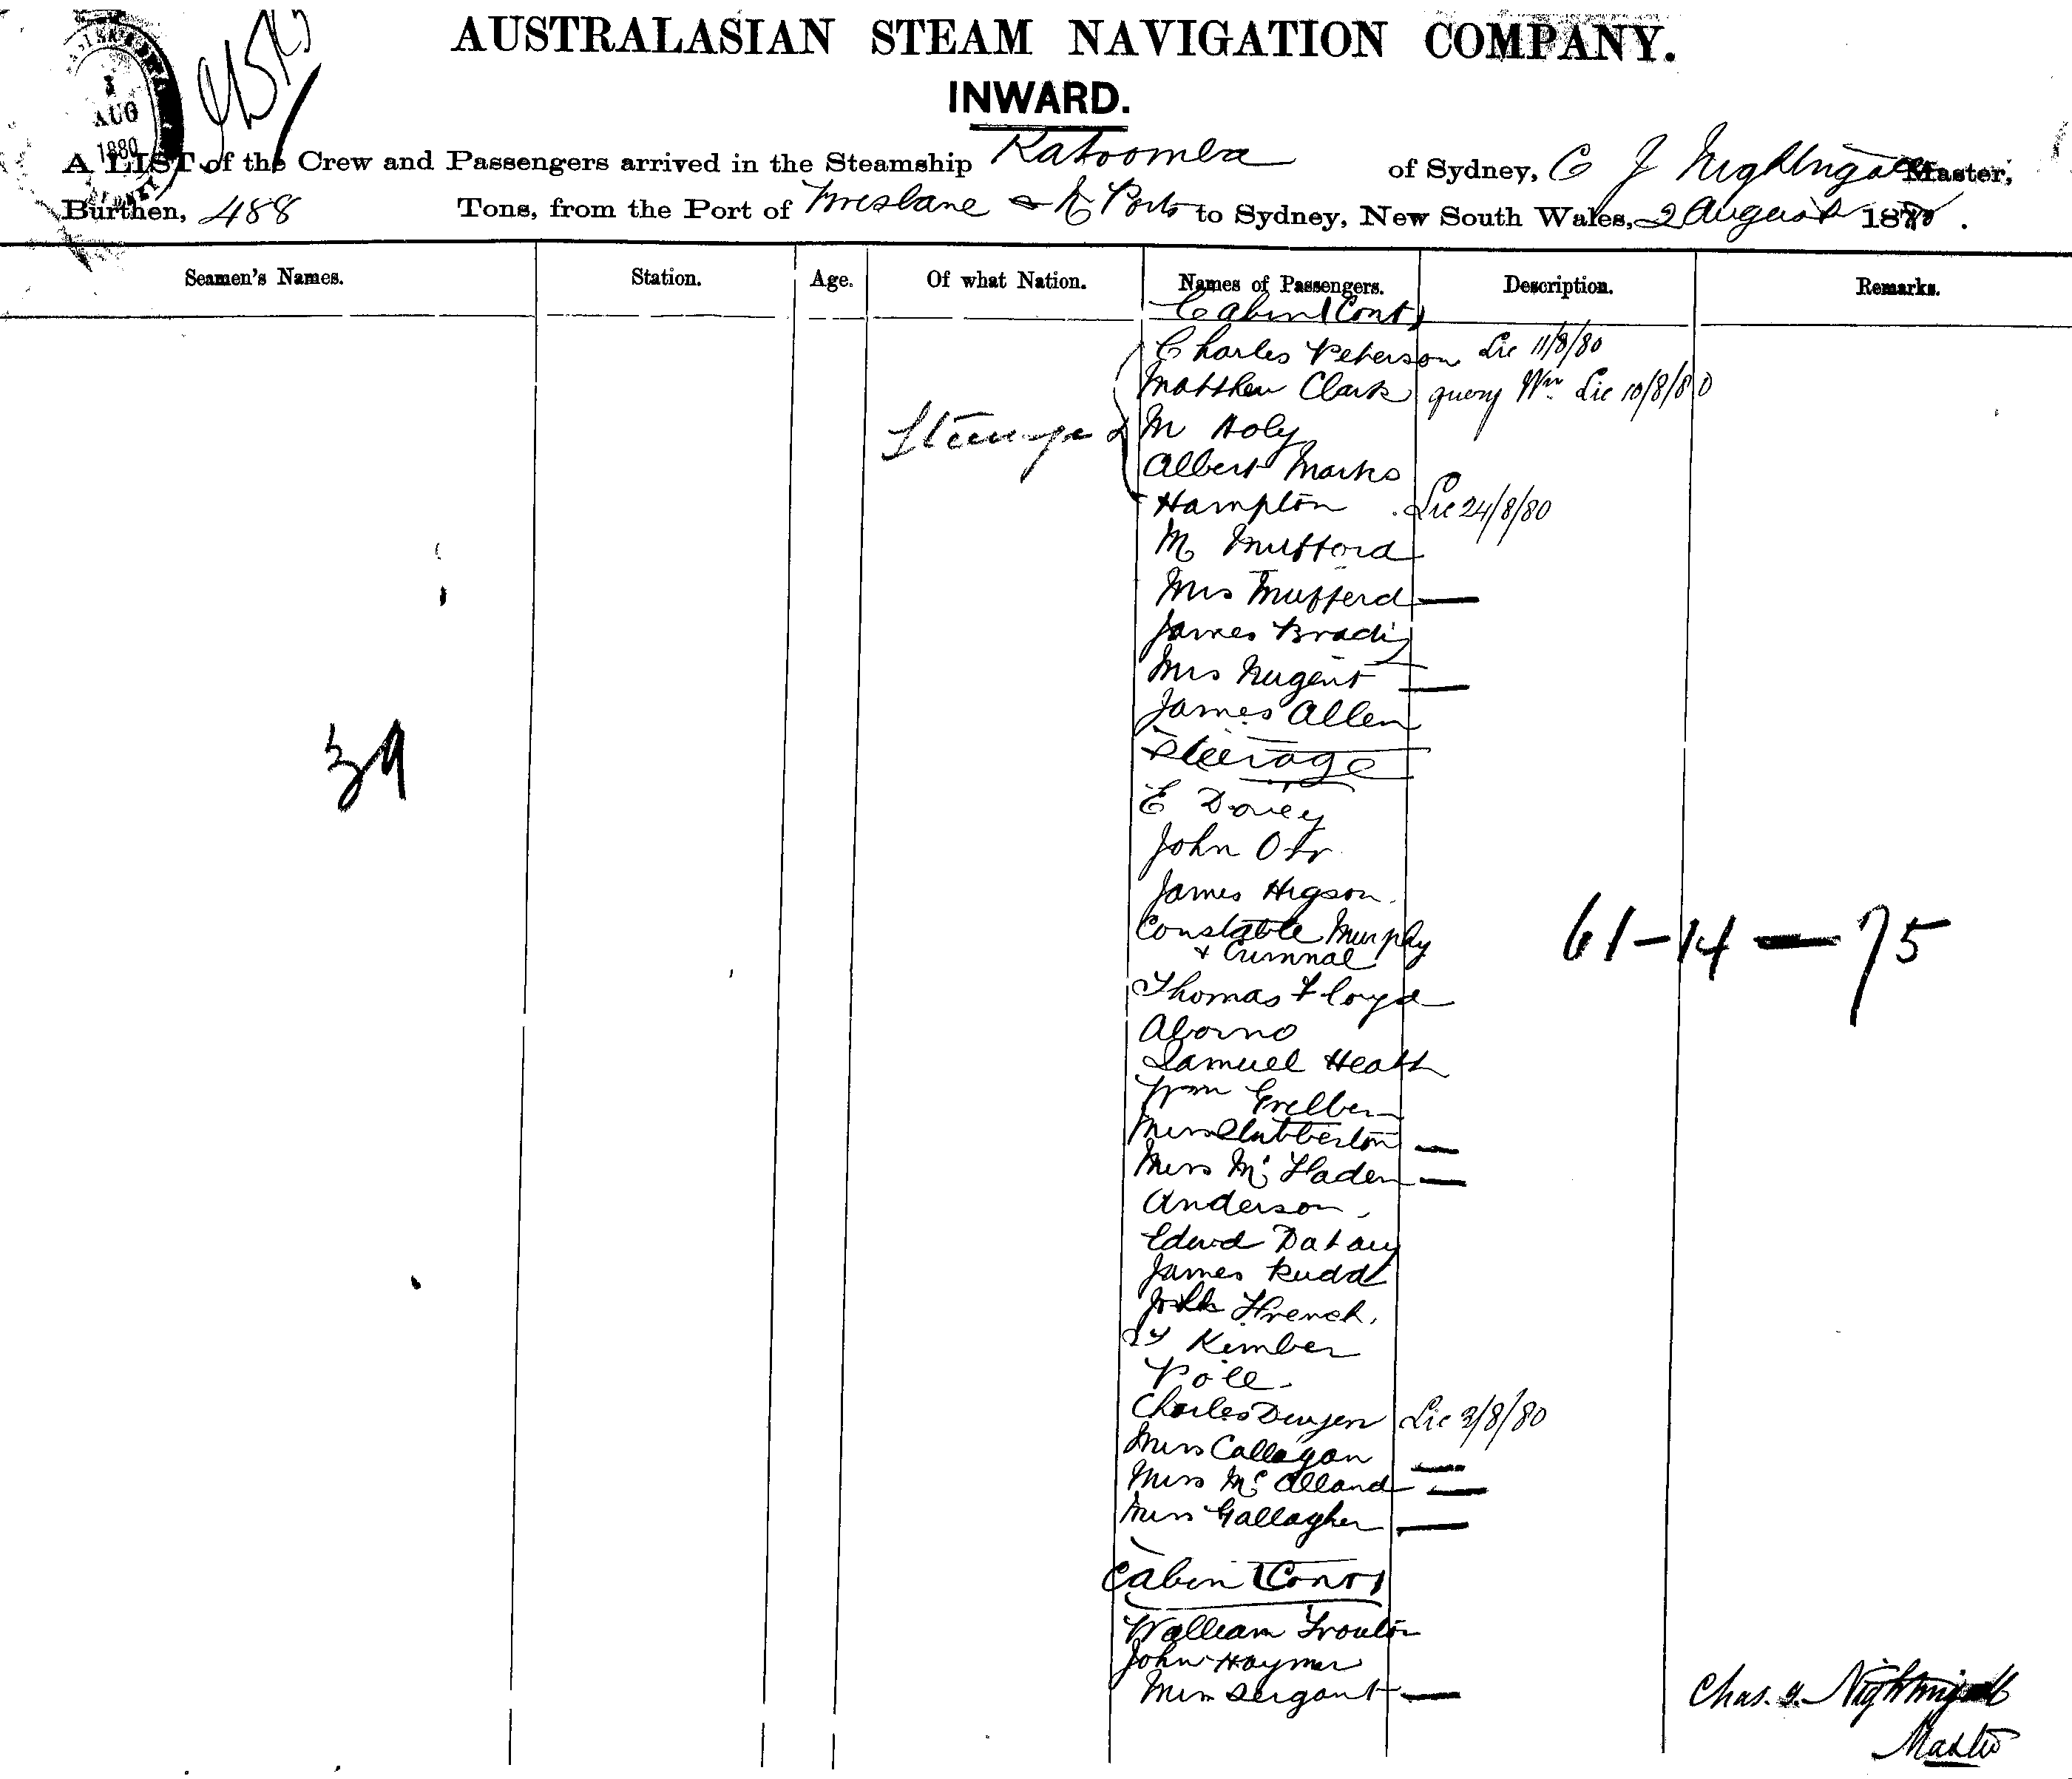 AUG
1880
AUSTRALASIAN STEAM NAVIGATION COMPANY.
INWARD.
A LIST of the Crew and Passengers arrived in the Steamship Katoomba of Sydney, C J Nightingale Master,
Burthen, 488 Tons, from the Port of Brisbane & N Ports to Sydney, New South Wales, 2 August 1880.
Seamen's Names. Station. Age. Of what Nation. Names of Passengers. Description. Remarks.
Cabin (Cont)
Charles Peterson Lic 11/8/80
Matthew Clark query Wm Lic 10/8/80
Steerage M Holy
Albert Marks
Hampton Lic 24/8/80
M Mufford
Mrs Mufferd —
James Brady
Mrs Nugent —
James Allen
39
Steerage
E Dovey
John Orr
James Higson.
Constable Murphy
& Criminal
61-14 — 75
Thomas Floyd
Aborno
Samuel Heath
Wm
Miss Slubberton —
Miss McFaden —
Anderson
Edwd
James Rudd
French.
Kimber
Pole.
Charles Lic 3/8/80
Miss Callagan —
Miss McAlland —
Miss Gallagher —
Cabin (Cont)
William Troulon
John Haymer
Miss Sergant —
Chas. J. Nightingale
Master